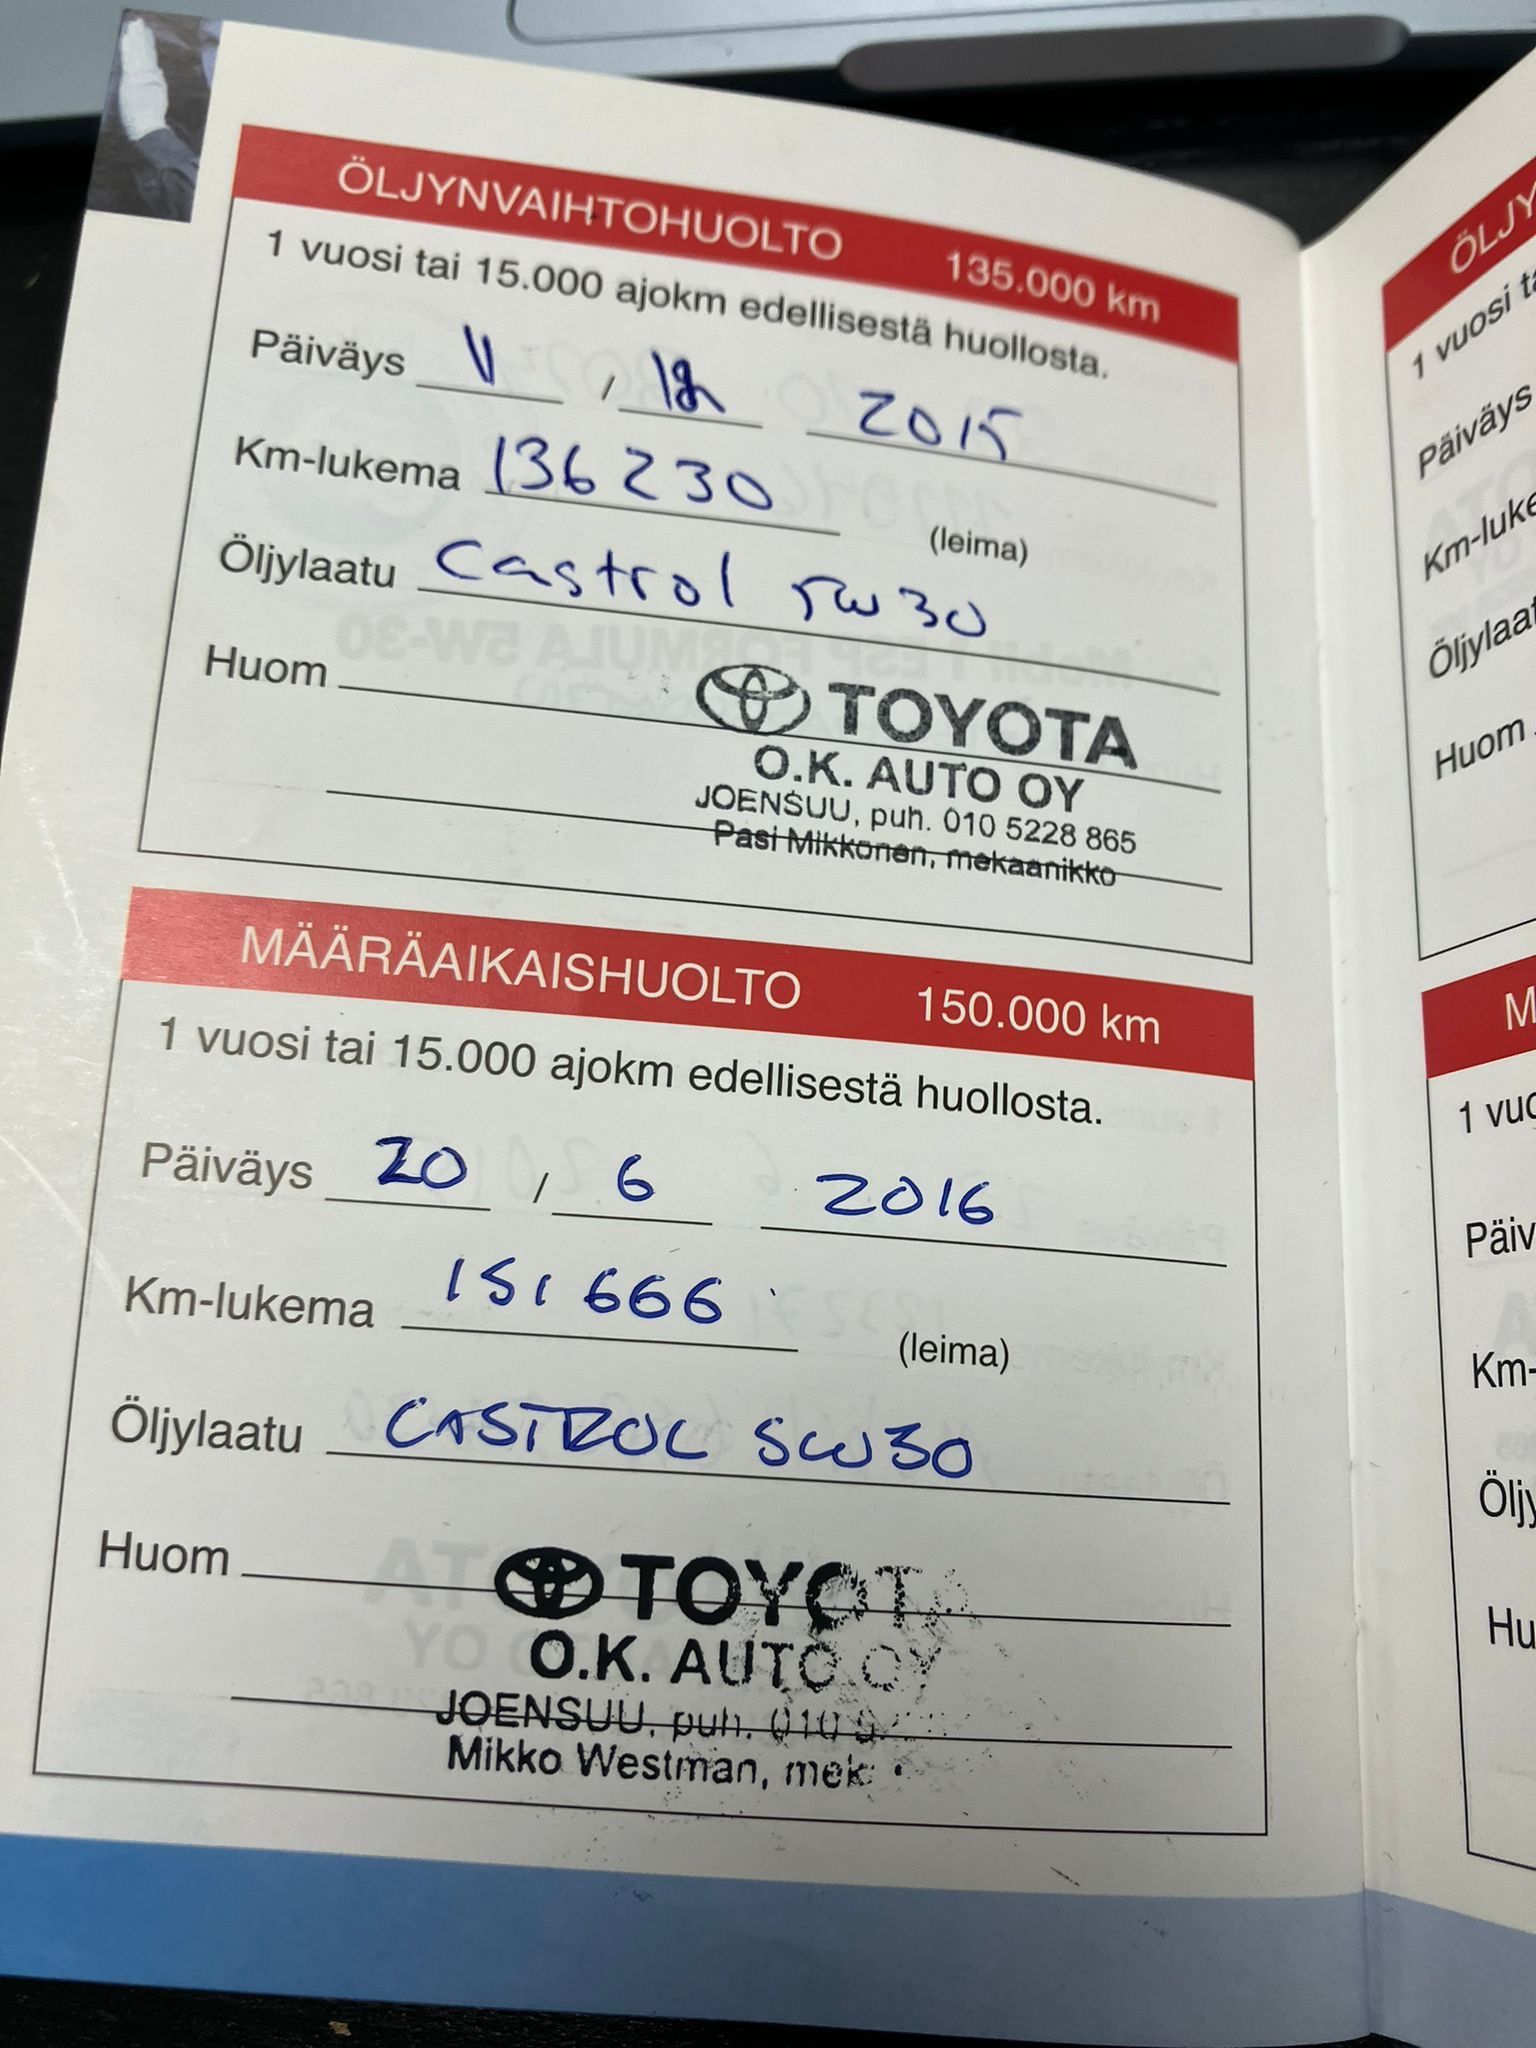 ÖLJYNVAIHTOHUOLTO 135.000 km
1 vuosi tai 15.000 ajokm edellisestä huollosta.
Päiväys 11 / 12 2015
Km-lukema 136230
(leima)
Öljylaatu Castrol 5w30
Huom
TOYOTA
O.K. AUTO OY
JOENSUU, puh. 010 5228 865
Pasi Mikkonen, mekaanikko
MÄÄRÄAIKAISHUOLTO 150.000 km
1 vuosi tai 15.000 ajokm edellisestä huollosta.
Päiväys 20 / 6 2016
Km-lukema 151666
(leima)
Öljylaatu CASTROL 5W30
Huom
TOYOTA
O.K. AUTO OY
JOENSUU, puh. 010
Mikko Westman, mek
ÖLJY
1 vuosi ta
Päiväys
Km-luke
Öljylaat
Huom
M
1 vuo
Päiv
Km-
Öljy
Hu